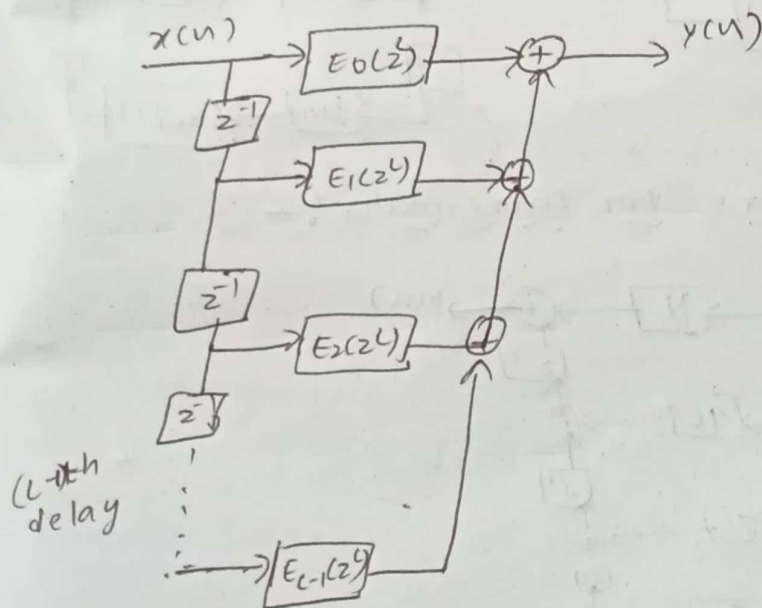 x(n)
E0(z^L)
y(n)
z^-1
E1(z^L)
z^-1
E2(z^L)
z^-
(L-1)th
delay
EL-1(z^L)